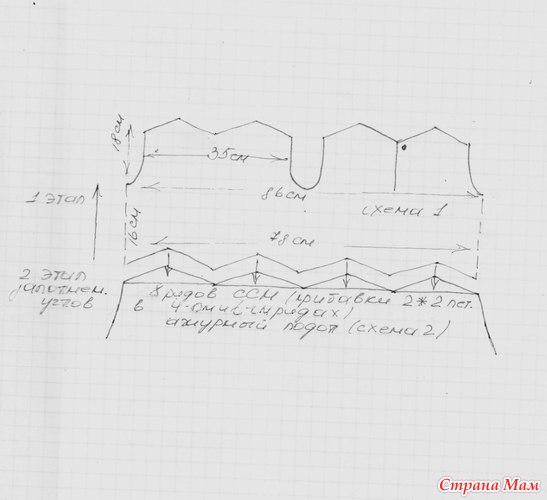 18см
35см
86см
1 этап
схема 1
16см
78см
2 этап
заполнен.
углов
8 рядов ССН (прибавки 2*2 пет.
в 4-ом и
рядах)
ажурный подол (схема 2)
Страна Мам